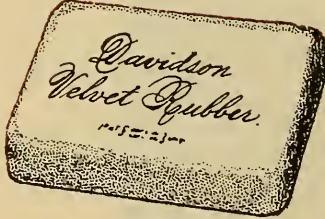 Davidson
Velvet Rubber.